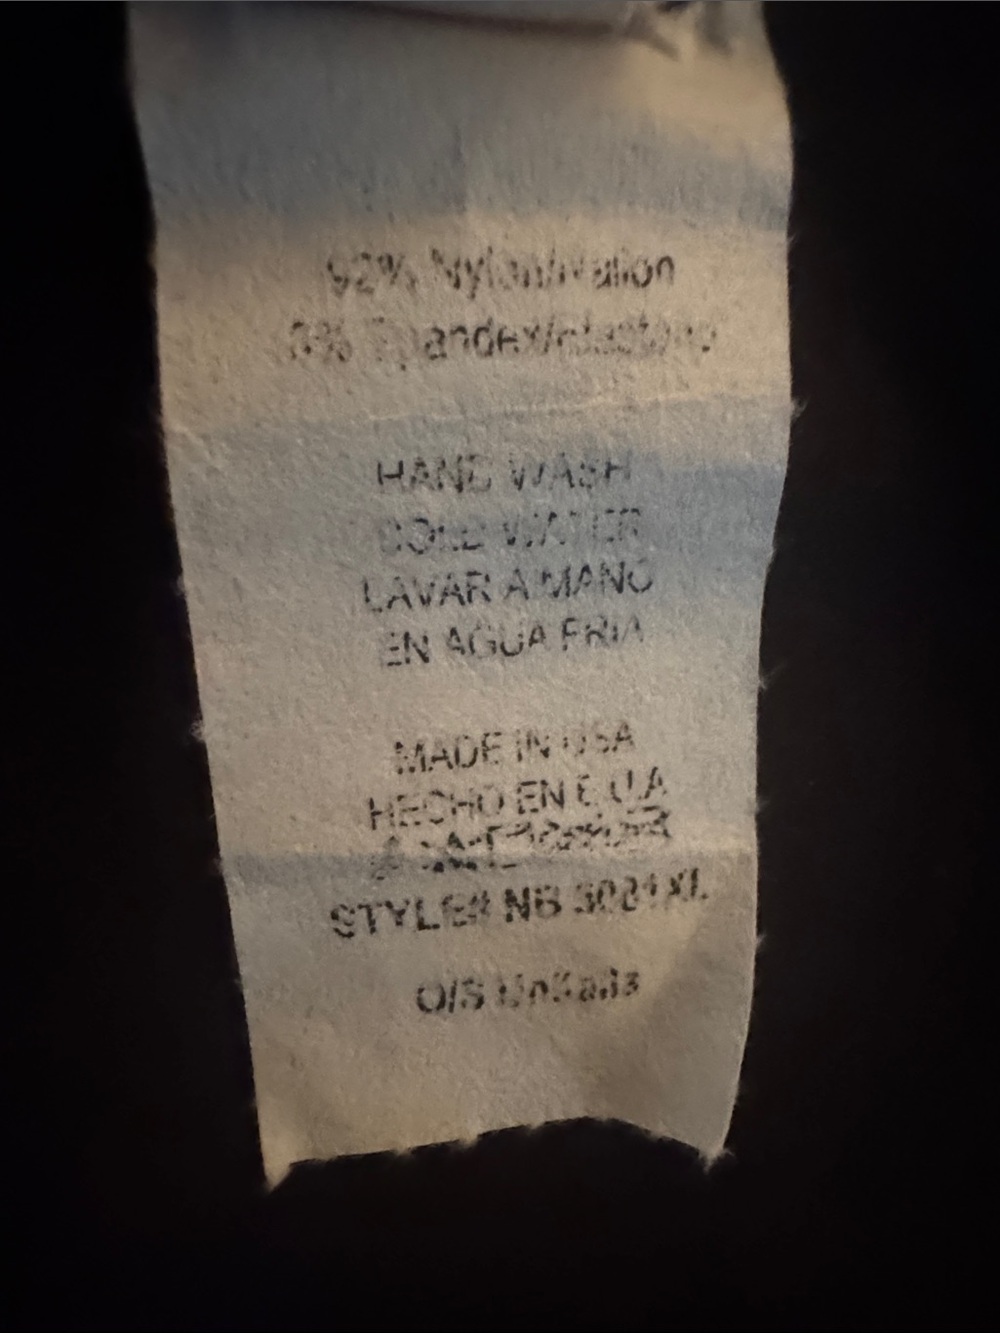 92% Nylon/nailon
8% Spandex/elastano
HAND WASH
COLD WATER
LAVAR A MANO
EN AGUA FRIA
MADE IN USA
HECHO EN E.U.A
STYLE# NB
O/S